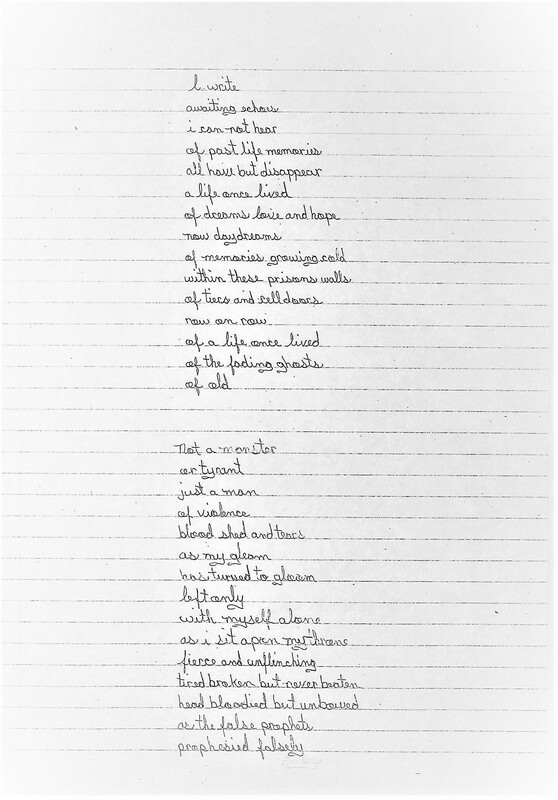 I write
awaiting echoes
i can not hear
of past life memories
all have but disappear
a life once lived
of dreams love and hope
now daydreams
of memories growing cold
within these prisons walls
of tiers and cell doors
row on row
of a life once lived
of the fading ghosts
of old
Not a monster
or tyrant
just a man
of violence
blood shed and tears
as my gleam
has turned to gloom
left only
with myself alone
as i sit apon my throne
fierce and unflinching
tired broken but never beaten
head bloodied but unbowed
as the false prophets
prophesied falsely